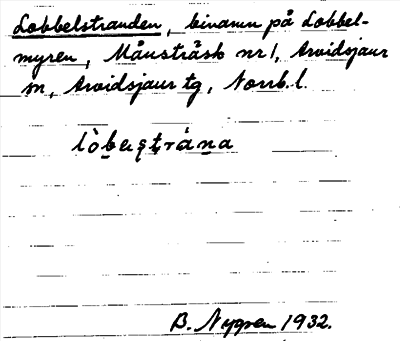 Lobbelstranden, binamn på Lobbel-
myren, Månsträsk nr 1, Arvidsjaur
sn, Arvidsjaur tg, Norrb. l.
B. Nygren 1932.